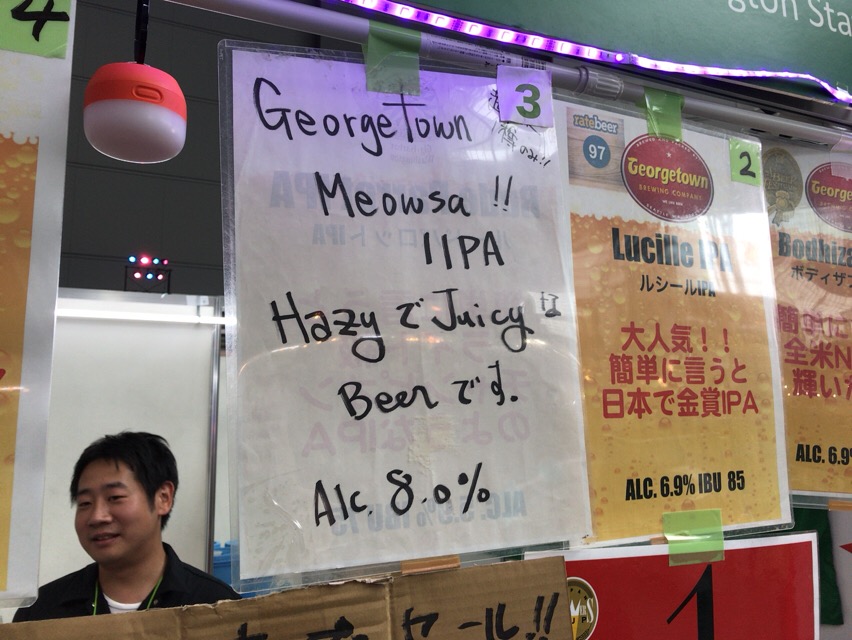 4
Georgetown
樽のみ!!
3
Meowsa!!
IIPA
HazyでJuicyな
Beerです.
Alc. 8.0%
ratebeer
97
Georgetown
BREWING COMPANY
2
Lucille IPA
ルシールIPA
大人気！！
簡単に言うと
日本で金賞IPA
ALC. 6.9% IBU 85
gton Sta
George
Bodhiza
ボディザフ
簡単に
全米N
輝いた
ALC. 6.9
セール!!
1